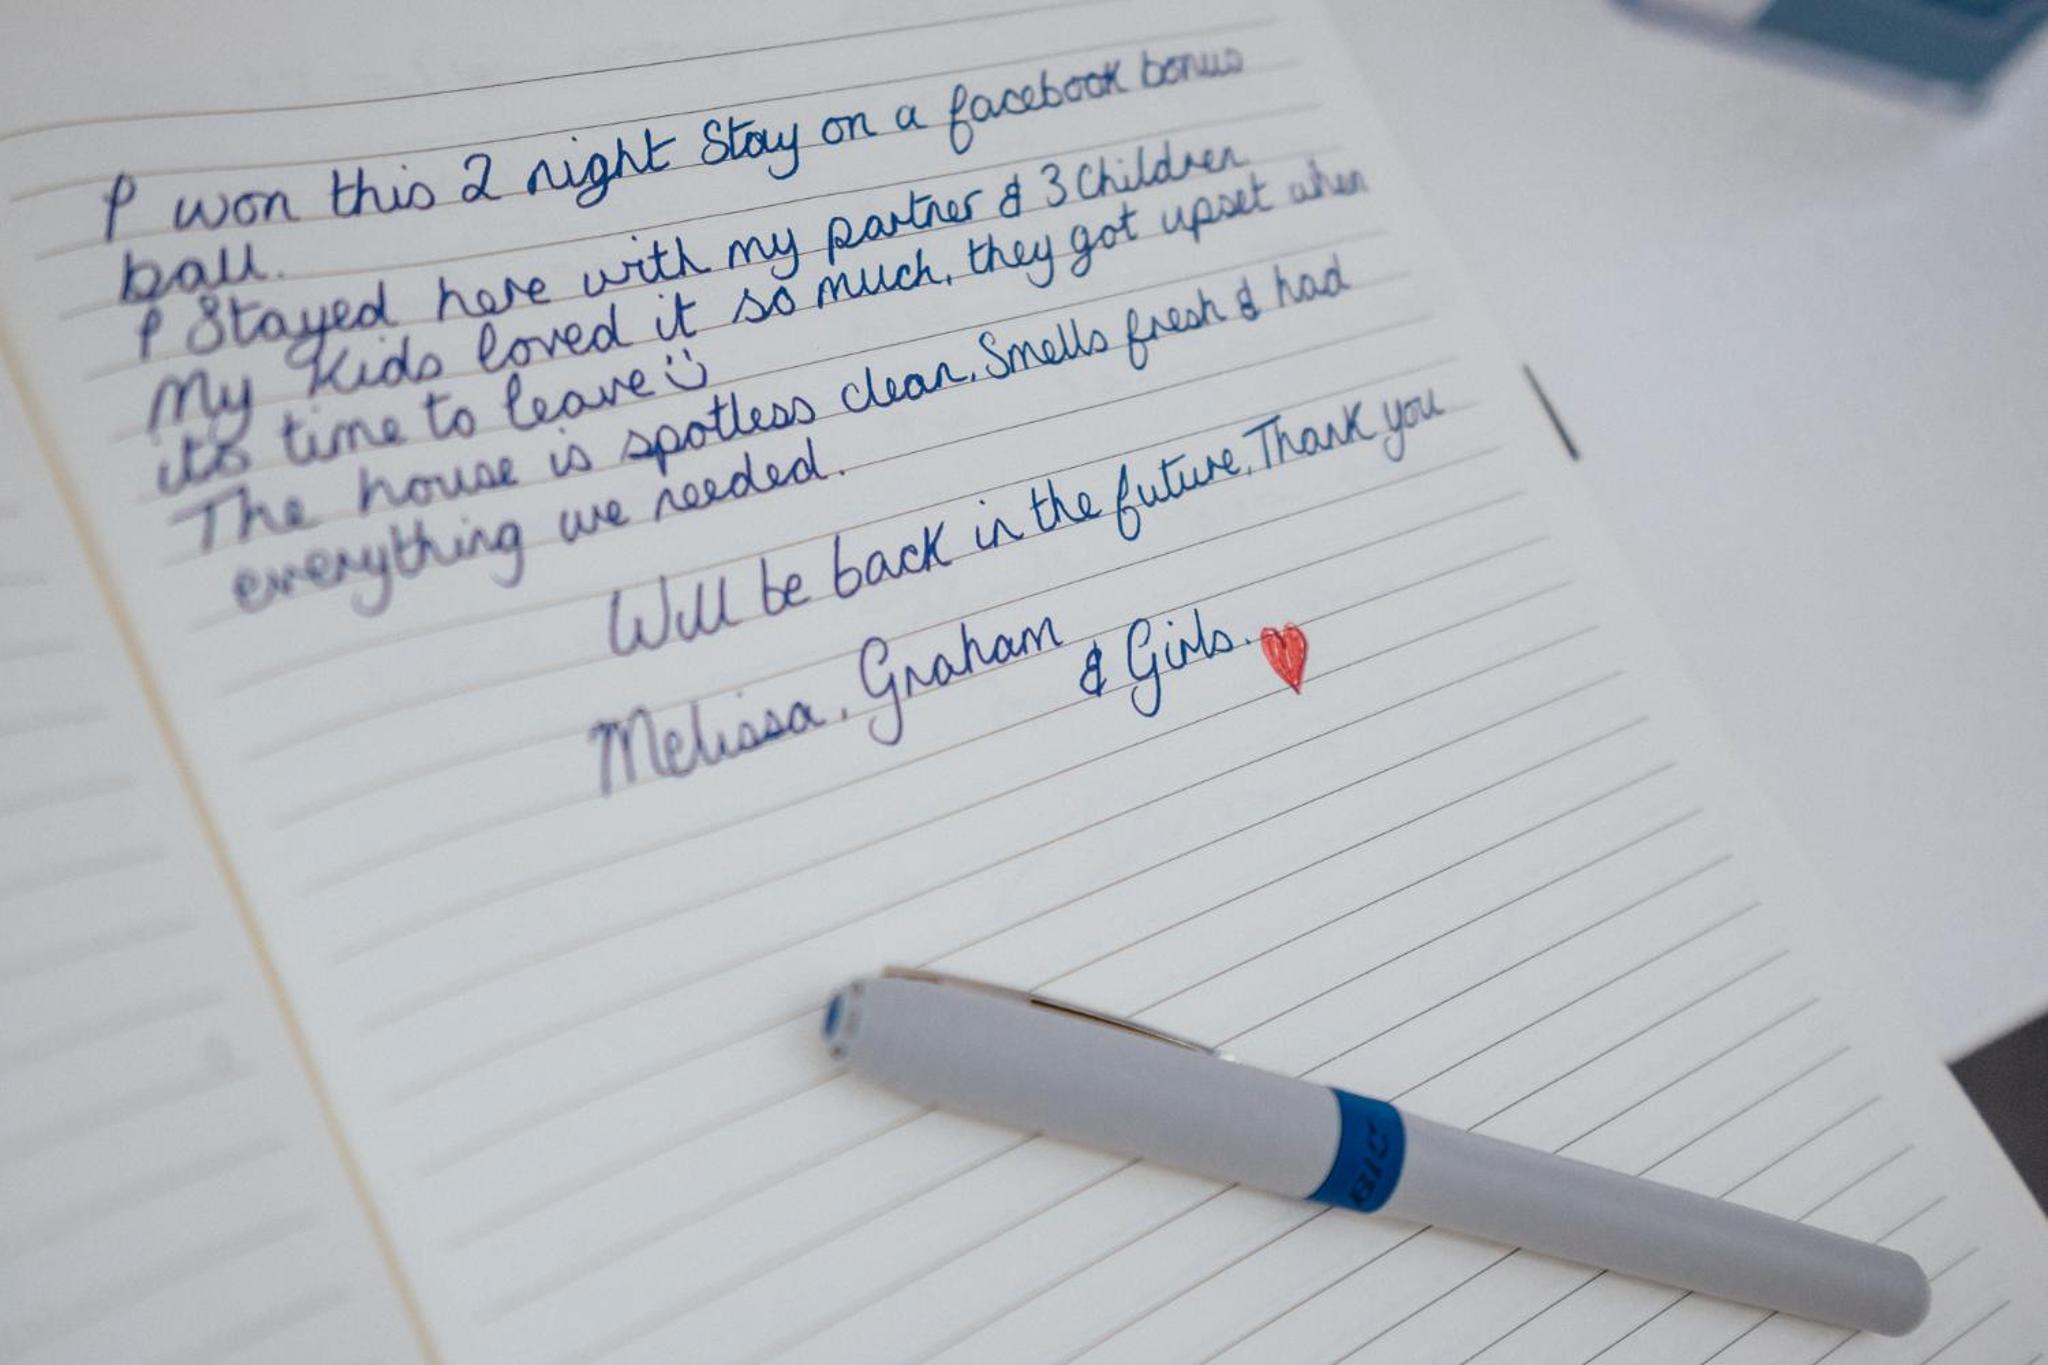 I won this 2 night Stay on a facebook bonus
ball.
I Stayed here with my partner & 3 Children.
My kids loved it so much, they got upset when
its time to leave :)
The house is spotless clean. Smells fresh & had
everything we needed.
Will be back in the future. Thank you
Melissa, Graham
& Girls. ♥
BIC